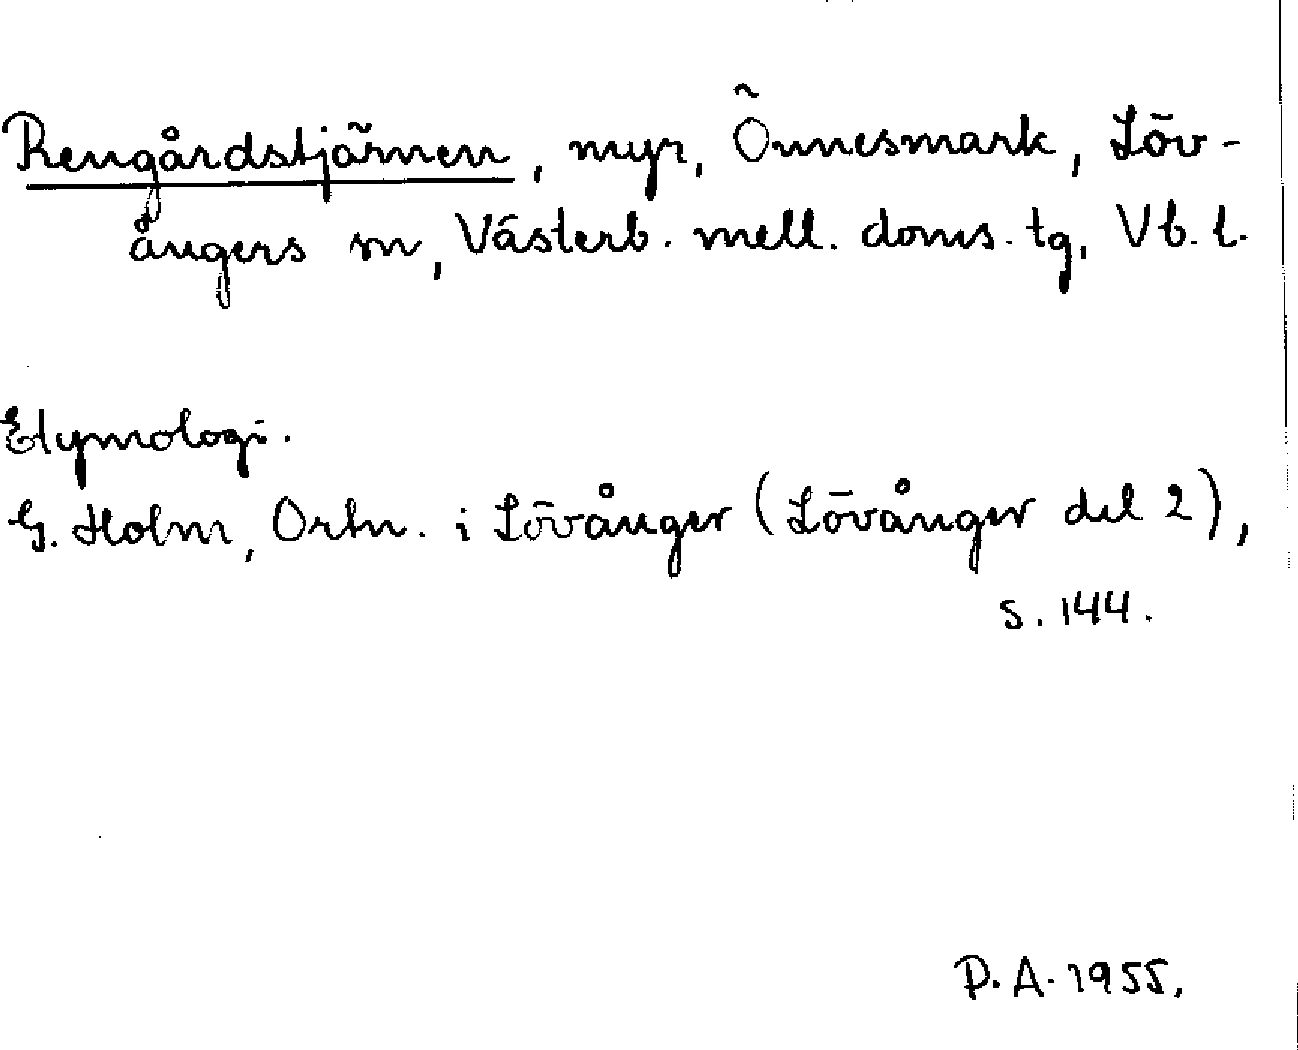 Rengårdstjärnen, myr, Önnesmark, Löv-
ångers sn, Västerb. mell. doms. tg, Vb. l.
Etymologi.
G. Holm, Ortn. i Lövånger (Lövånger del 2),
s. 144.
P. A. 1955.